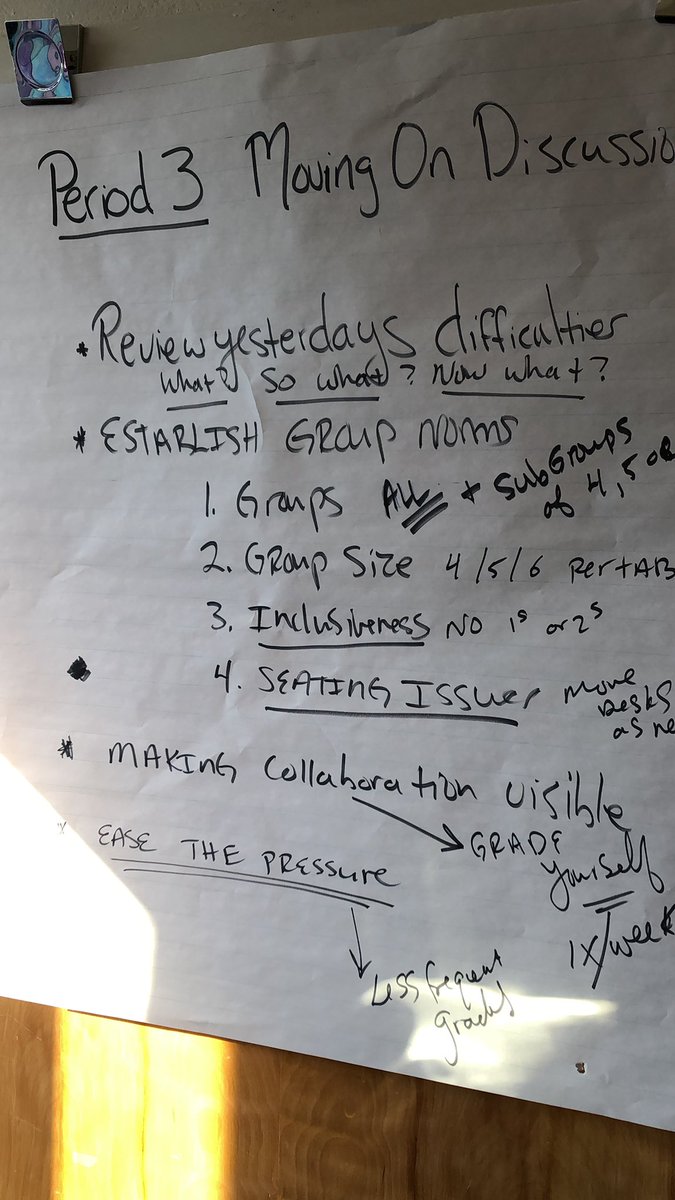 Period 3 Moving On Discussio
* Review yesterdays difficulties
What? So what? Now what?
* ESTABLISH GROUP NORMS
1. Groups ALL + SubGroups
of 4, 5 or
2. GROUP Size 4/5/6 PER TAB
3. Inclusiveness NO 1s or 2s
4. SEATING ISSUES move
Desks
as ne
* MAKING Collaboration visible
GRADE
yourself
1X/week
* EASE THE PRESSURE
Less frequent
grades